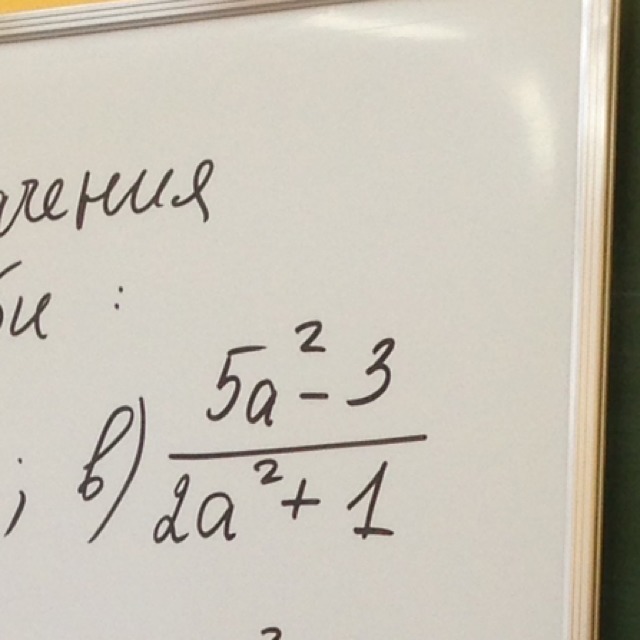 ачения
би :
; в) (5a² - 3)/(2a² + 1)
2